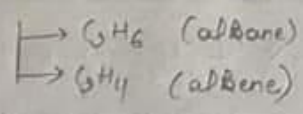 → C₃H₆ (alkane)
→ C₃H₄ (alkene)